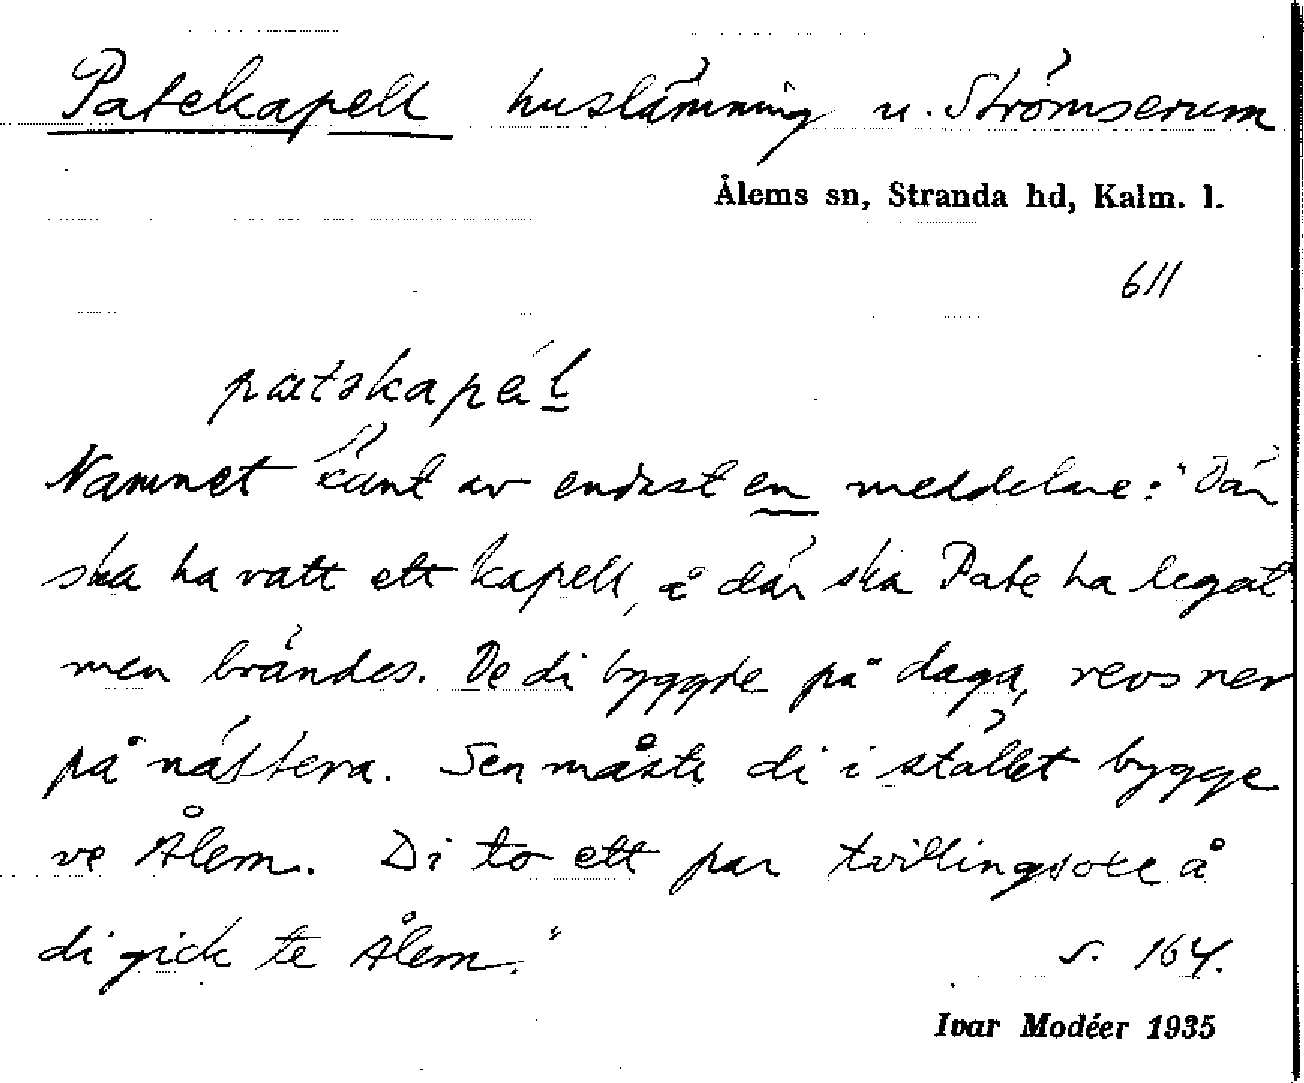 Patekapell huslämning u. Strömserum
Ålems sn, Stranda hd, Kalm. l.
611
patəkapäl
Namnet känt av endast en meddelare: "Där
ska ha vatt ett kapell, å där ska Pate ha legat
men brändes. De di byggde på daga, revs ner
på nättera. Sen måste di i stället bygge
ve Ålem. Di to ett par tvillingsoxe å
di gick te Ålem."
s. 164.
Ivar Modéer 1935